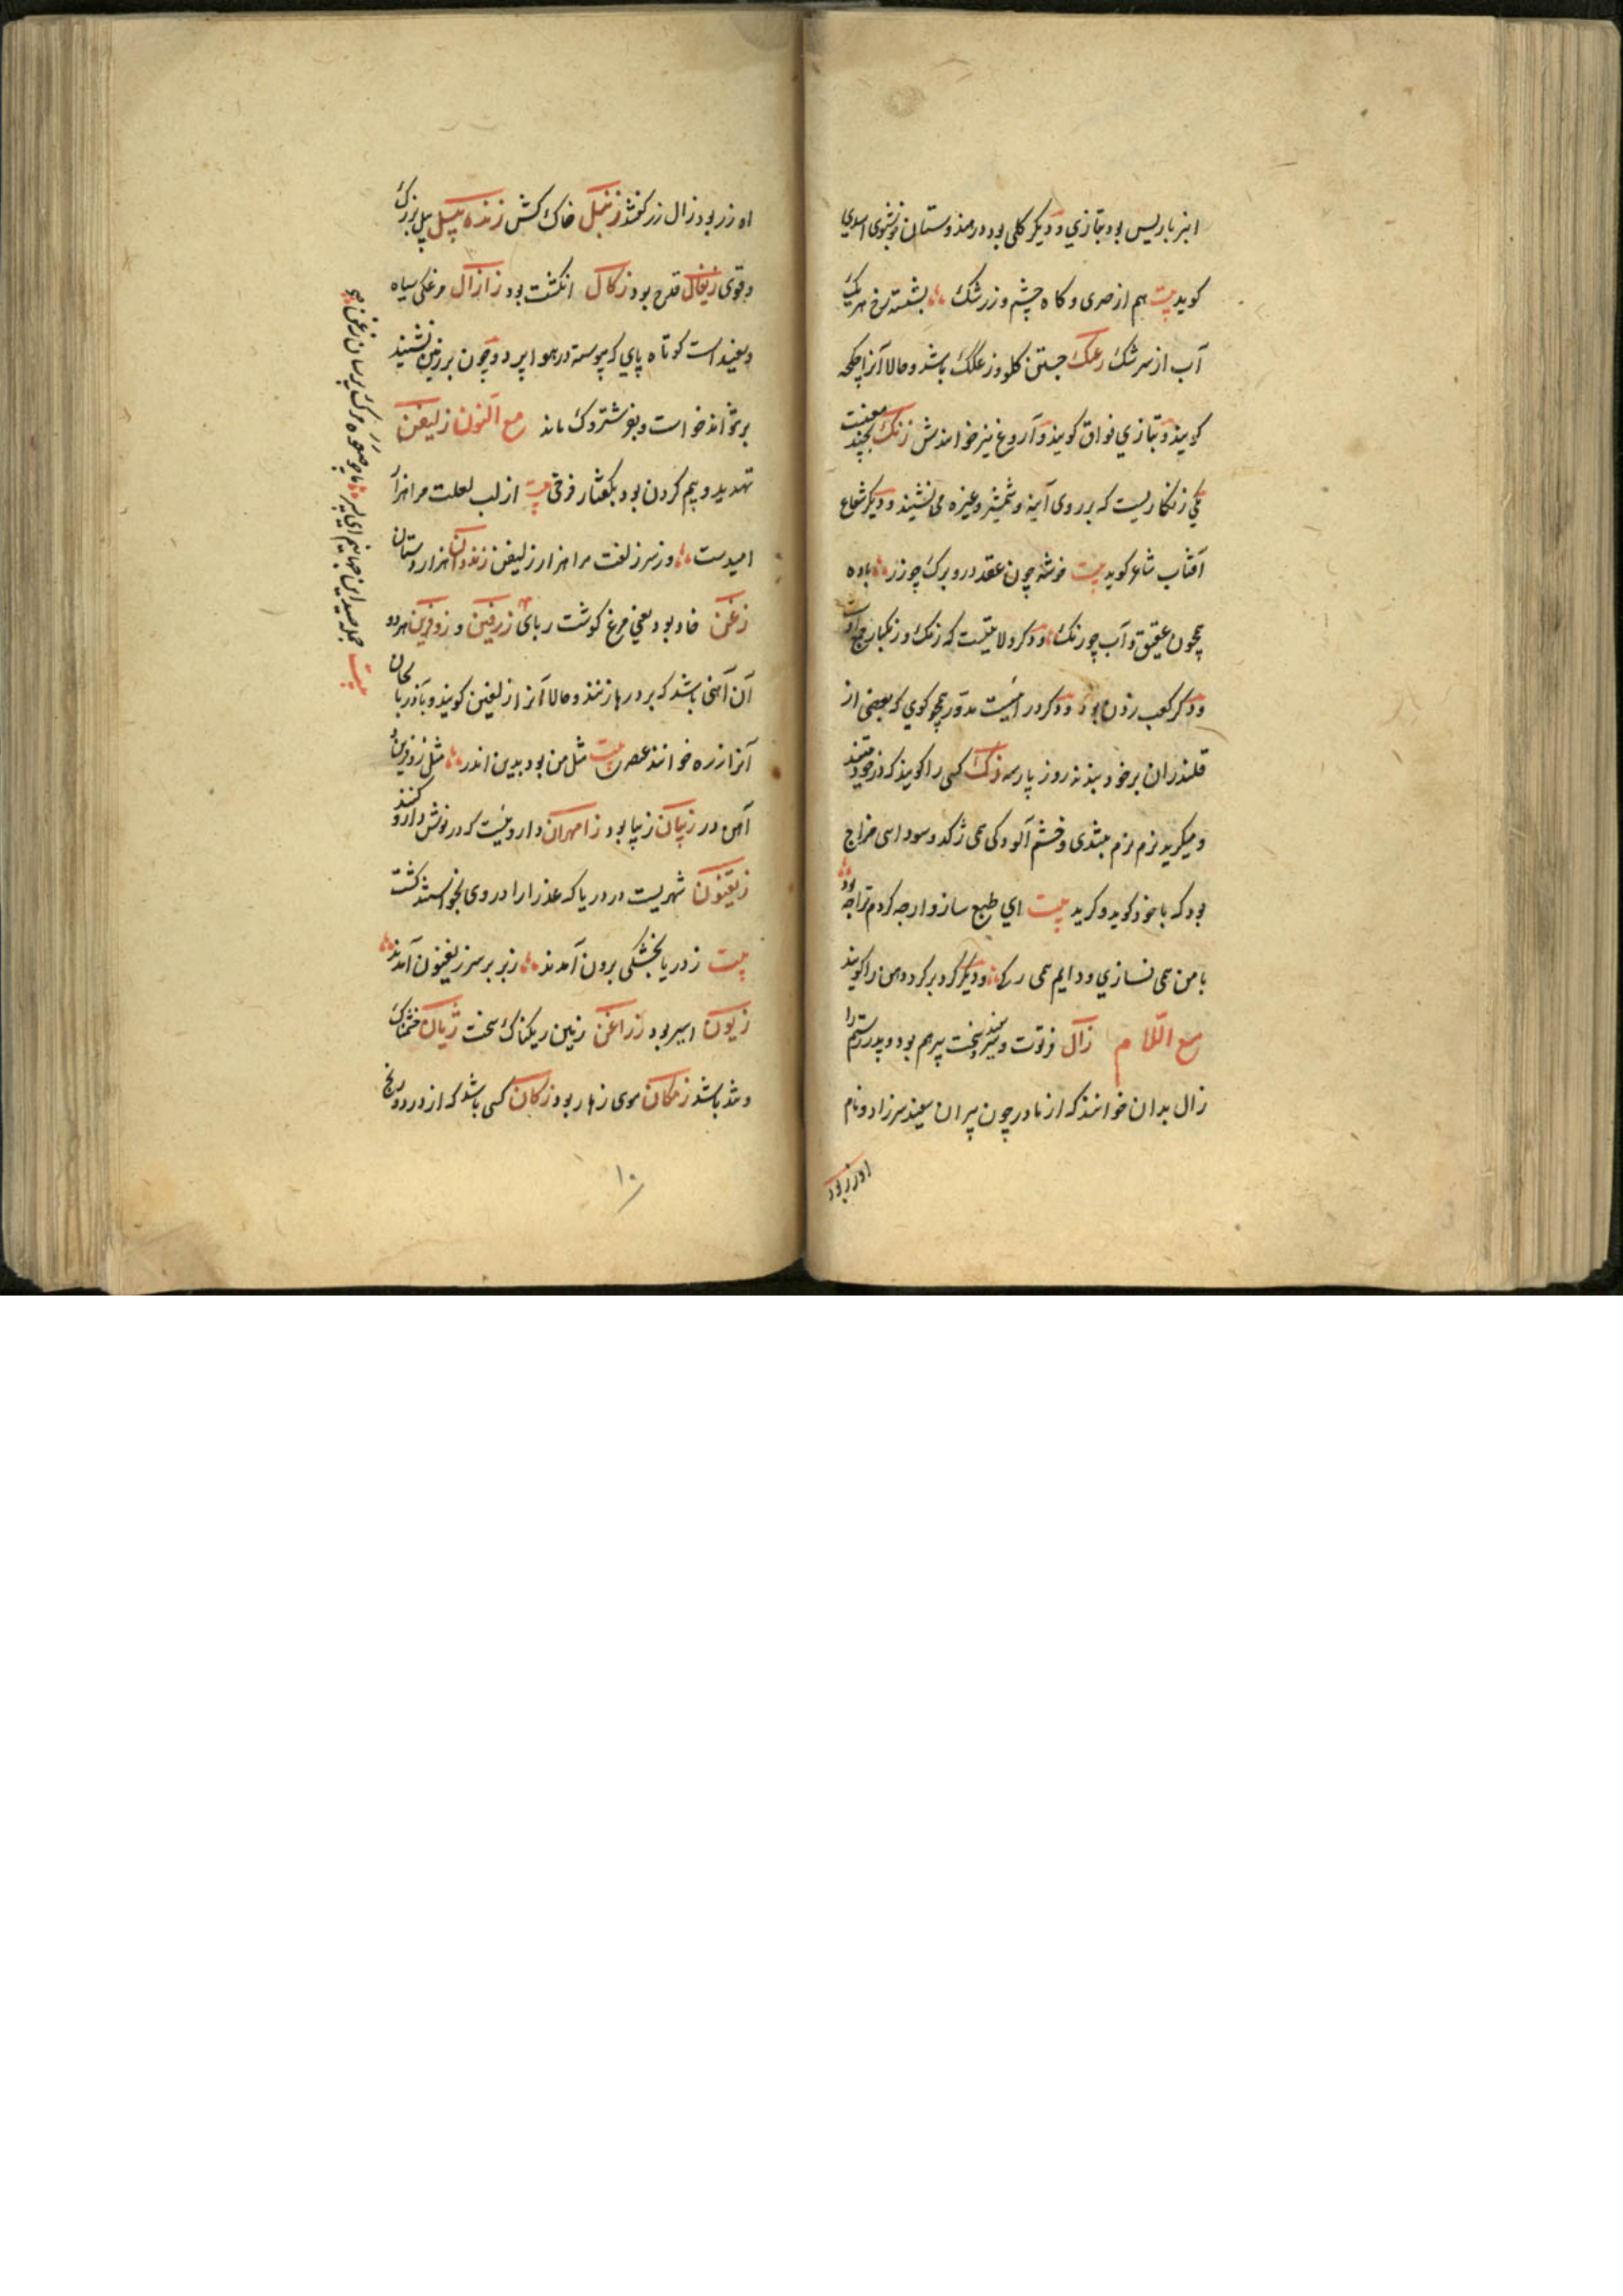 انبرباریس بود بتازی و دیگر گلی بود در هندوستان خوشبوی اسدی
کوید بیت هم از صری و کاه چشم و زرشک بشسته رخ هریک
آب از سرشک زغنک جستن کلو و زغلک باشد و حالا آنرا چکچه
کویند و بتازی فواق کویند و آروغ نیز خوانندش زنک بچند معنیست
یکی زنکاریست که بر روی آینه و شمشیر و غیره می نشیند و دیکر شعاع
آفتاب شاعر کوید بیت خوشه چون عقد در و برک چو زر باده
همچون عقیق و آب چو زنک و دکر ولایتیست که زنک و زنکبار
ودکر کعب رزن بود و دکر در ایست مدور همچو کوی که بعضی از
قلندران بر خود بندند روز پارسه زک کسی را کویند که در خود
و میکرید نرم نرم بتندی و خشم آلودکی همی ژکد و سودایی مزاج
بود که با خود کوید و کرید بیت ای طبع سازوار چه کردم ترا چه بود
با من همی نسازی و دایم همی ژکی و دیکر کرد بر کرد دهن را کویند
مع اللام زال فرتوت و سپید سر سخت پیر هم بود و پدر رستم را
زال بدان خوانند که از مادر چون پیران سپید سر زاد و نام
او زر بود
او زر بود زال زر کفتند زنبل خاک کش زنده پیل پیل بزرک
وقوی زیغال قدح بود زکال انکشت بود زازال مرغکی سیاه
و سفید است کوتاه پای که پیوسته در هوا پرد و چون بر زمین نشیند
بر نتواند خواست و بفرشتروک ماند مع النون زلیفن
تهدید و بیم کردن بود بکفتار فرخی بیت از لب لعلت مرا هزار
امیدست وز سر زلفت مرا هزار زلیفن زندوان هزاردستان
زغن خاد بود یعنی مرغ کوشت ربای زرفین و زوفرین هر دو
آن آهنی باشد که بر درها زنند و حالا آنرا زلفین کویند و بآذربایجان
آنرا زره خوانند عنصری بیت مثل من بود بدین اندر مثل زوفرین
آهن در زیبان زیبا بود زامهران داروییست که در نوش دارو کنند
زیفنون شهریست در دریا که عذرا را در وی بخواستند کشت
بیت ز دریا بخشکی برون آمدند ز بر بر سر زیفنون آمدند
زبون اسیر بود زراغن زمین ریکناک سخت ژیان خشمناک
و تند باشد زمکان موی زهار بود زکان کسی باشد که از درد و رنج
بیت جمله صید این جهانیم ای پسر ما چو صعوه مرک بر سان زغن
۱۰